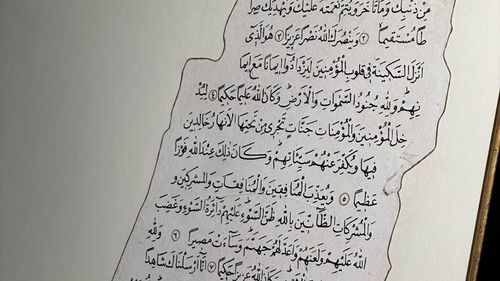 مِنْ ذَنْبِكَ وَمَا تَأَخَّرَ وَيُتِمَّ نِعْمَتَهُ عَلَيْكَ وَيَهْدِيَكَ صِرَا
طًا مُسْتَقِيمًا ٢ وَيَنْصُرَكَ اللهُ نَصْرًا عَزِيزًا ٣ هُوَ الَّذِي
اَنْزَلَ السَّكِينَةَ فِي قُلُوبِ الْمُؤْمِنِينَ لِيَزْدَادُوا اِيمَانًا مَعَ اِيمَا
نِهِمْ وَلِلهِ جُنُودُ السَّمَوَاتِ وَالْاَرْضِ وَكَانَ اللهُ عَلِيمًا حَكِيمًا ٤ لِيُدْ
خِلَ الْمُؤْمِنِينَ وَالْمُؤْمِنَاتِ جَنَّاتٍ تَجْرِي مِنْ تَحْتِهَا الْاَنْهَارُ خَالِدِينَ
فِيهَا وَيُكَفِّرَ عَنْهُمْ سَيِّئَاتِهِمْ وَكَانَ ذَلِكَ عِنْدَ اللهِ فَوْزًا
عَظِيمًا ٥ وَيُعَذِّبَ الْمُنَافِقِينَ وَالْمُنَافِقَاتِ وَالْمُشْرِكِينَ وَ
الْمُشْرِكَاتِ الظَّانِّينَ بِاللهِ ظَنَّ السَّوْءِ عَلَيْهِمْ دَائِرَةُ السَّوْءِ وَغَضِبَ
اللهُ عَلَيْهِمْ وَلَعَنَهُمْ وَاَعَدَّ لَهُمْ جَهَنَّمَ وَسَاءَتْ مَصِيرًا ٦ وَلِلهِ
وَكَانَ اللهُ عَزِيزًا حَكِيمًا ٧ اِنَّا اَرْسَلْنَاكَ شَاهِدًا